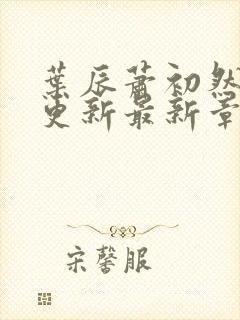 葉辰蕭初然
更新最新章
宋馨服